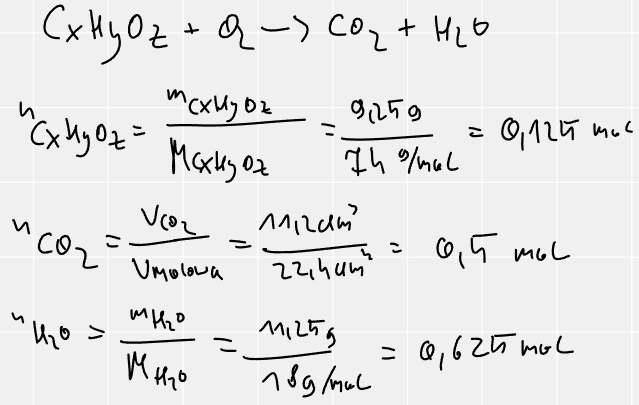 CxHyOz + O2 → CO2 + H2O
nCxHyOz = mCxHyOz / MCxHyOz = 9,25g / 74 g/mol = 0,125 mol
nCO2 = VCO2 / Vmolowa = 11,2 dm³ / 22,4 dm³ = 0,5 mol
nH2O = mH2O / MH2O = 11,25g / 18g/mol = 0,625 mol